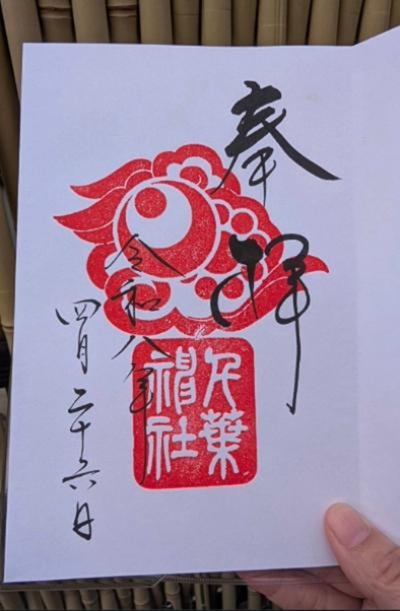 奉拝
千葉神社
令和八年
四月二十六日